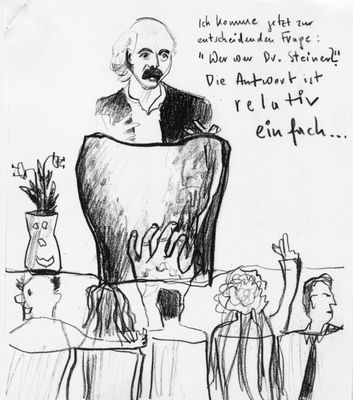 Ich komme jetzt zur
entscheidenden Frage:
"Wer war Dr. Steiner?"
Die Antwort ist
relativ
einfach...